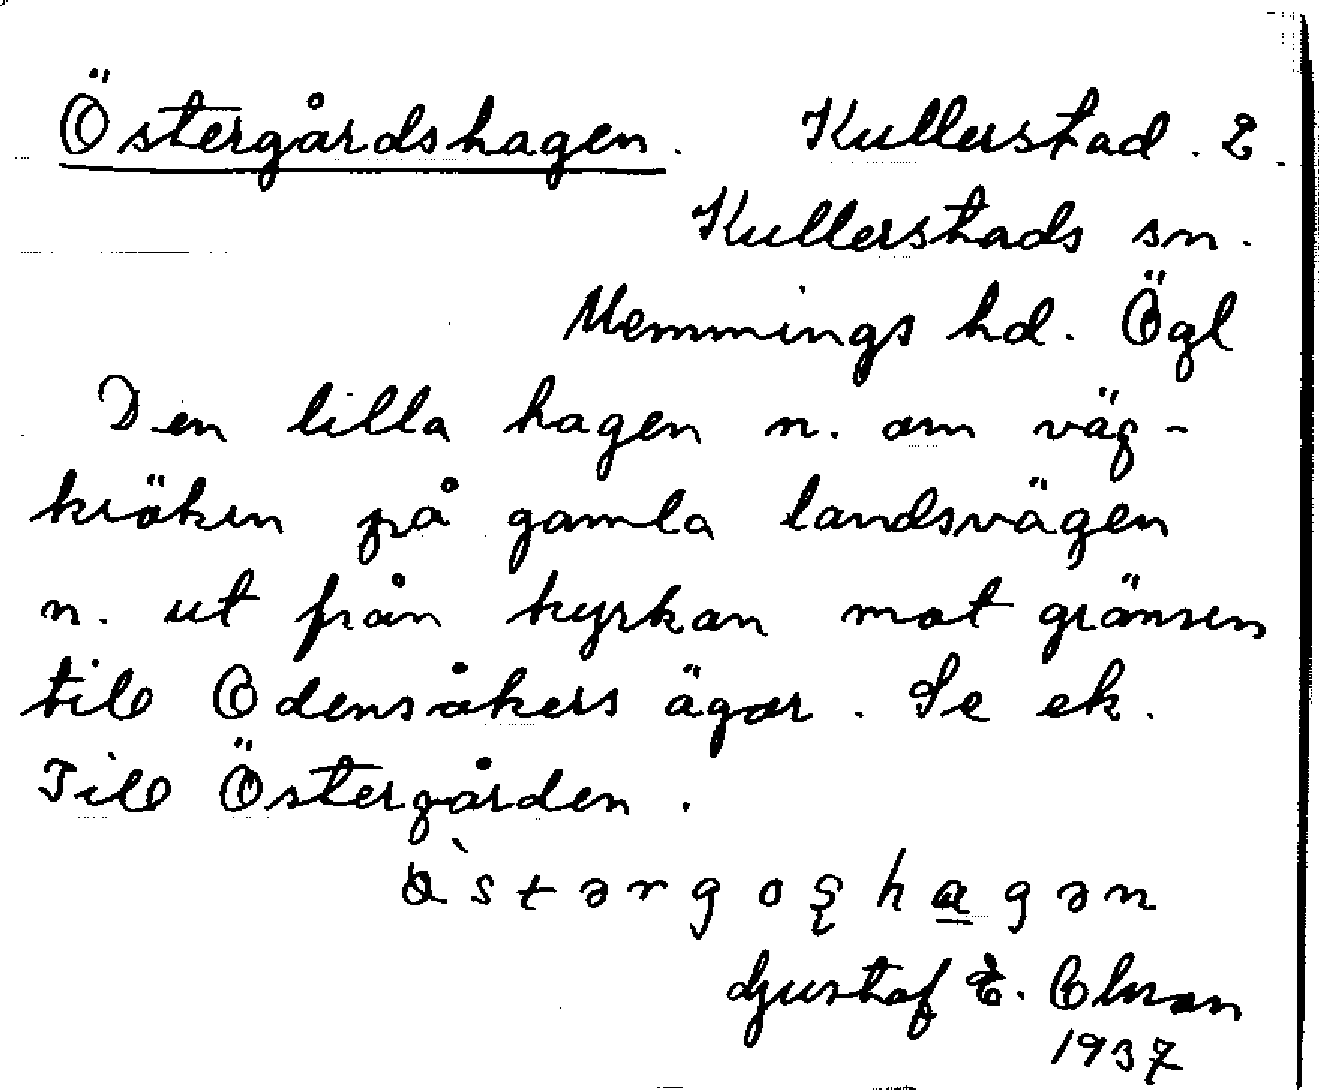 Östergårdshagen. Kullerstad. 2.
Kullerstads sn.
Memmings hd. Ögl
Den lilla hagen n. om väg-
kröken på gamla landsvägen
n. ut från kyrkan mot gränsen
till Odensåkers ägor. Se ek.
Till Östergården.
Gustaf E. Olson
1937